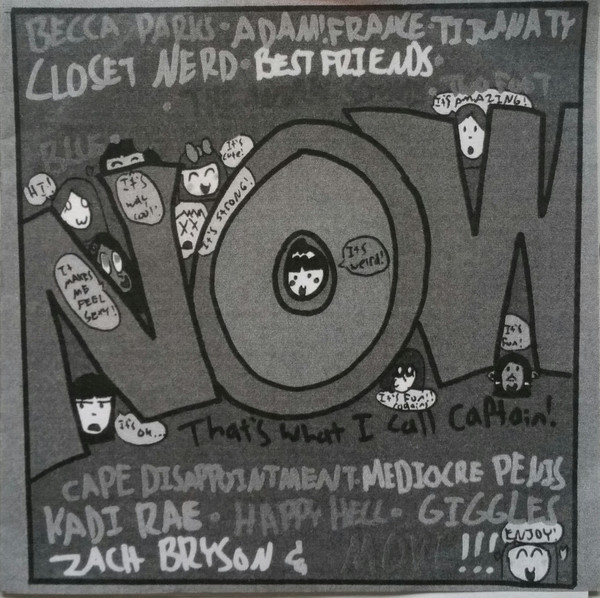 BECCA PARKS • ADAM! FRANCE • TIRANATY
CLOSET NERD • BEST FRIENDS •
BLUE •
It's AMAZING!
It's cute!
HI!
It's way cool!
It's STRONG!
It's weird!
It MAKES ME FEEL SEXY!
NOW
It's fun!
It's Fun! (again)
It's ok...
That's What I Call Captain!
CAPE DISAPPOINTMENT • MEDIOCRE PENIS
KADI RAE • HAPPY HELL • GIGGLES
ZACH BRYSON & MORE !!!
ENJOY!